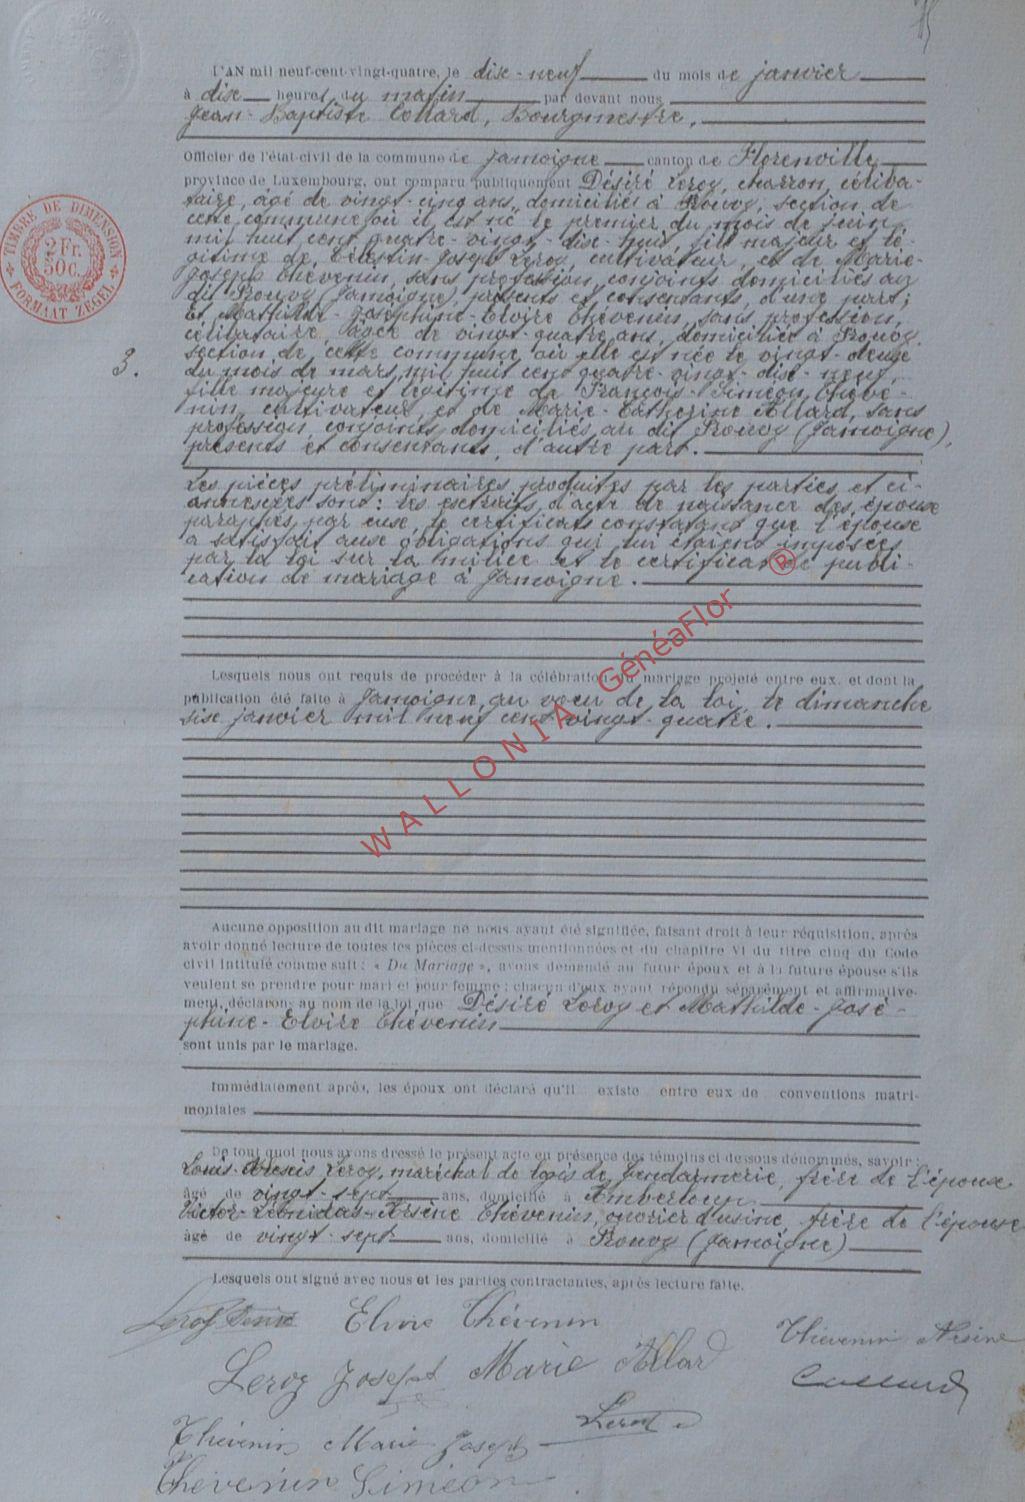 L'AN mil neuf-cent-vingt-quatre, le dix-neuf du mois de janvier
à dix heures du matin par devant nous
Jean-Baptiste Collard, Bourgmestre,
Officier de l'état-civil de la commune de Jamoigne canton de Florenville
province de Luxembourg, ont comparu publiquement Désiré Leroy, charron, céliba-
taire, âgé de vingt-cinq ans, domicilié à Prouvy, section de
cette commune où il est né le premier du mois de juin
mil huit cent quatre-vingt-dix-huit, fils majeur et lé-
gitime de Célestin-Joseph Leroy, cultivateur, et de Marie-
Joseph Thévenin, sans profession, conjoints domiciliés au
dit Prouvy (Jamoigne), présents et consentants, d'une part;
Et Mathilde-Joséphine-Elvire Thévenin, sans profession,
célibataire, âgée de vingt-quatre ans, domiciliée à Prouvy,
section de cette commune où elle est née le vingt-deux
3.
du mois de mars mil huit cent quatre-vingt-dix-neuf,
fille majeure et légitime de François-Siméon Théve-
nin, cultivateur, et de Marie-Catherine Allard, sans
profession, conjoints domiciliés au dit Prouvy (Jamoigne),
présents et consentants, d'autre part.
Les pièces préliminaires produites par les parties et ci-
annexées sont: les extraits d'acte de naissance des époux
paraphés par eux, le certificat constatant que l'époux
a satisfait aux obligations qui lui étaient imposées
par la loi sur la milice et le certificat de publi-
cation de mariage à Jamoigne.
Lesquels nous ont requis de procéder à la célébration du mariage projeté entre eux, et dont la
publication été faite à Jamoigne, au vœu de la loi, le dimanche
six janvier mil neuf cent vingt-quatre.
Aucune opposition au dit mariage ne nous ayant été signifiée, faisant droit à leur réquisition, après
avoir donné lecture de toutes les pièces ci-dessus mentionnées et du chapitre VI du titre cinq du Code
civil intitulé comme suit: « Du Mariage », avons demandé au futur époux et à la future épouse s'ils
veulent se prendre pour mari et pour femme; chacun d'eux ayant répondu séparément et affirmative-
ment, déclarons au nom de la loi que Désiré Leroy et Mathilde-José-
phine-Elvire Thévenin
sont unis par le mariage.
Immédiatement après, les époux ont déclaré qu'il existe entre eux de conventions matri-
moniales
De tout quoi nous avons dressé le présent acte en présence des témoins ci-dessous dénommés, savoir:
Louis-Alexis Leroy, maréchal de logis de gendarmerie, frère de l'époux
âgé de vingt-sept ans, domicilié à Amberloup
Victor-Léonidas-Arsène Thévenin, ouvrier d'usine, frère de l'épouse
âgé de vingt-sept ans, domicilié à Prouvy (Jamoigne)
Lesquels ont signé avec nous et les parties contractantes, après lecture faite.
Leroy Désiré Elvire Thévenin Thévenin Arsène
Leroy Joseph Marie Allard Collard
Thévenin Marie Joseph Leroy
Thévenin Siméon
TIMBRE DE DIMENSION
2 Fr.
50 c.
FORMAAT ZEGEL
WALLONIA GénéaFlor ®